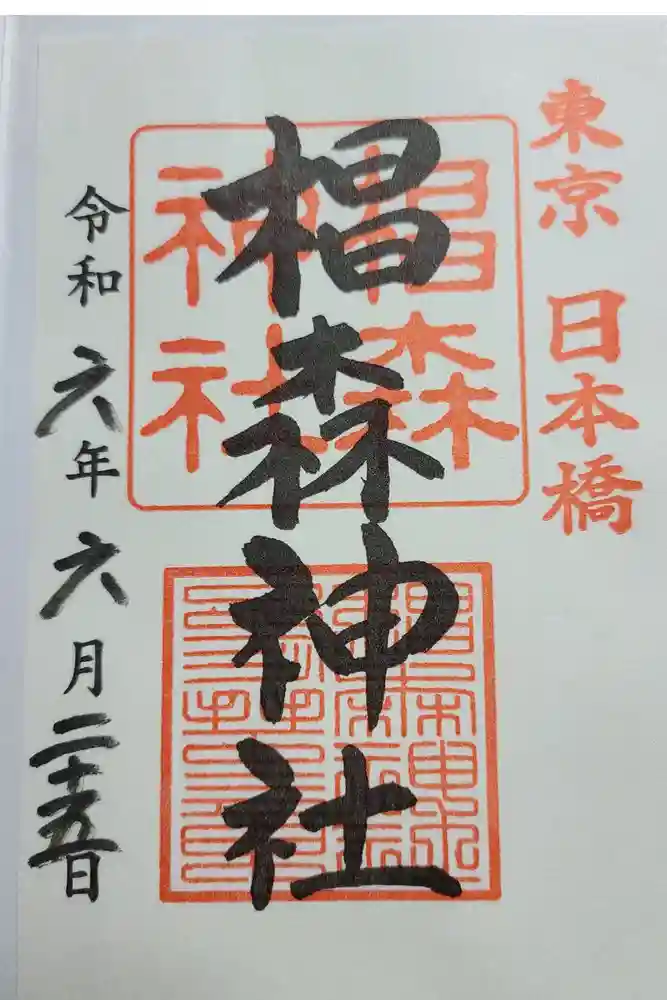 東京 日本橋
椙森神社
椙森
神社
令和六年六月二十五日